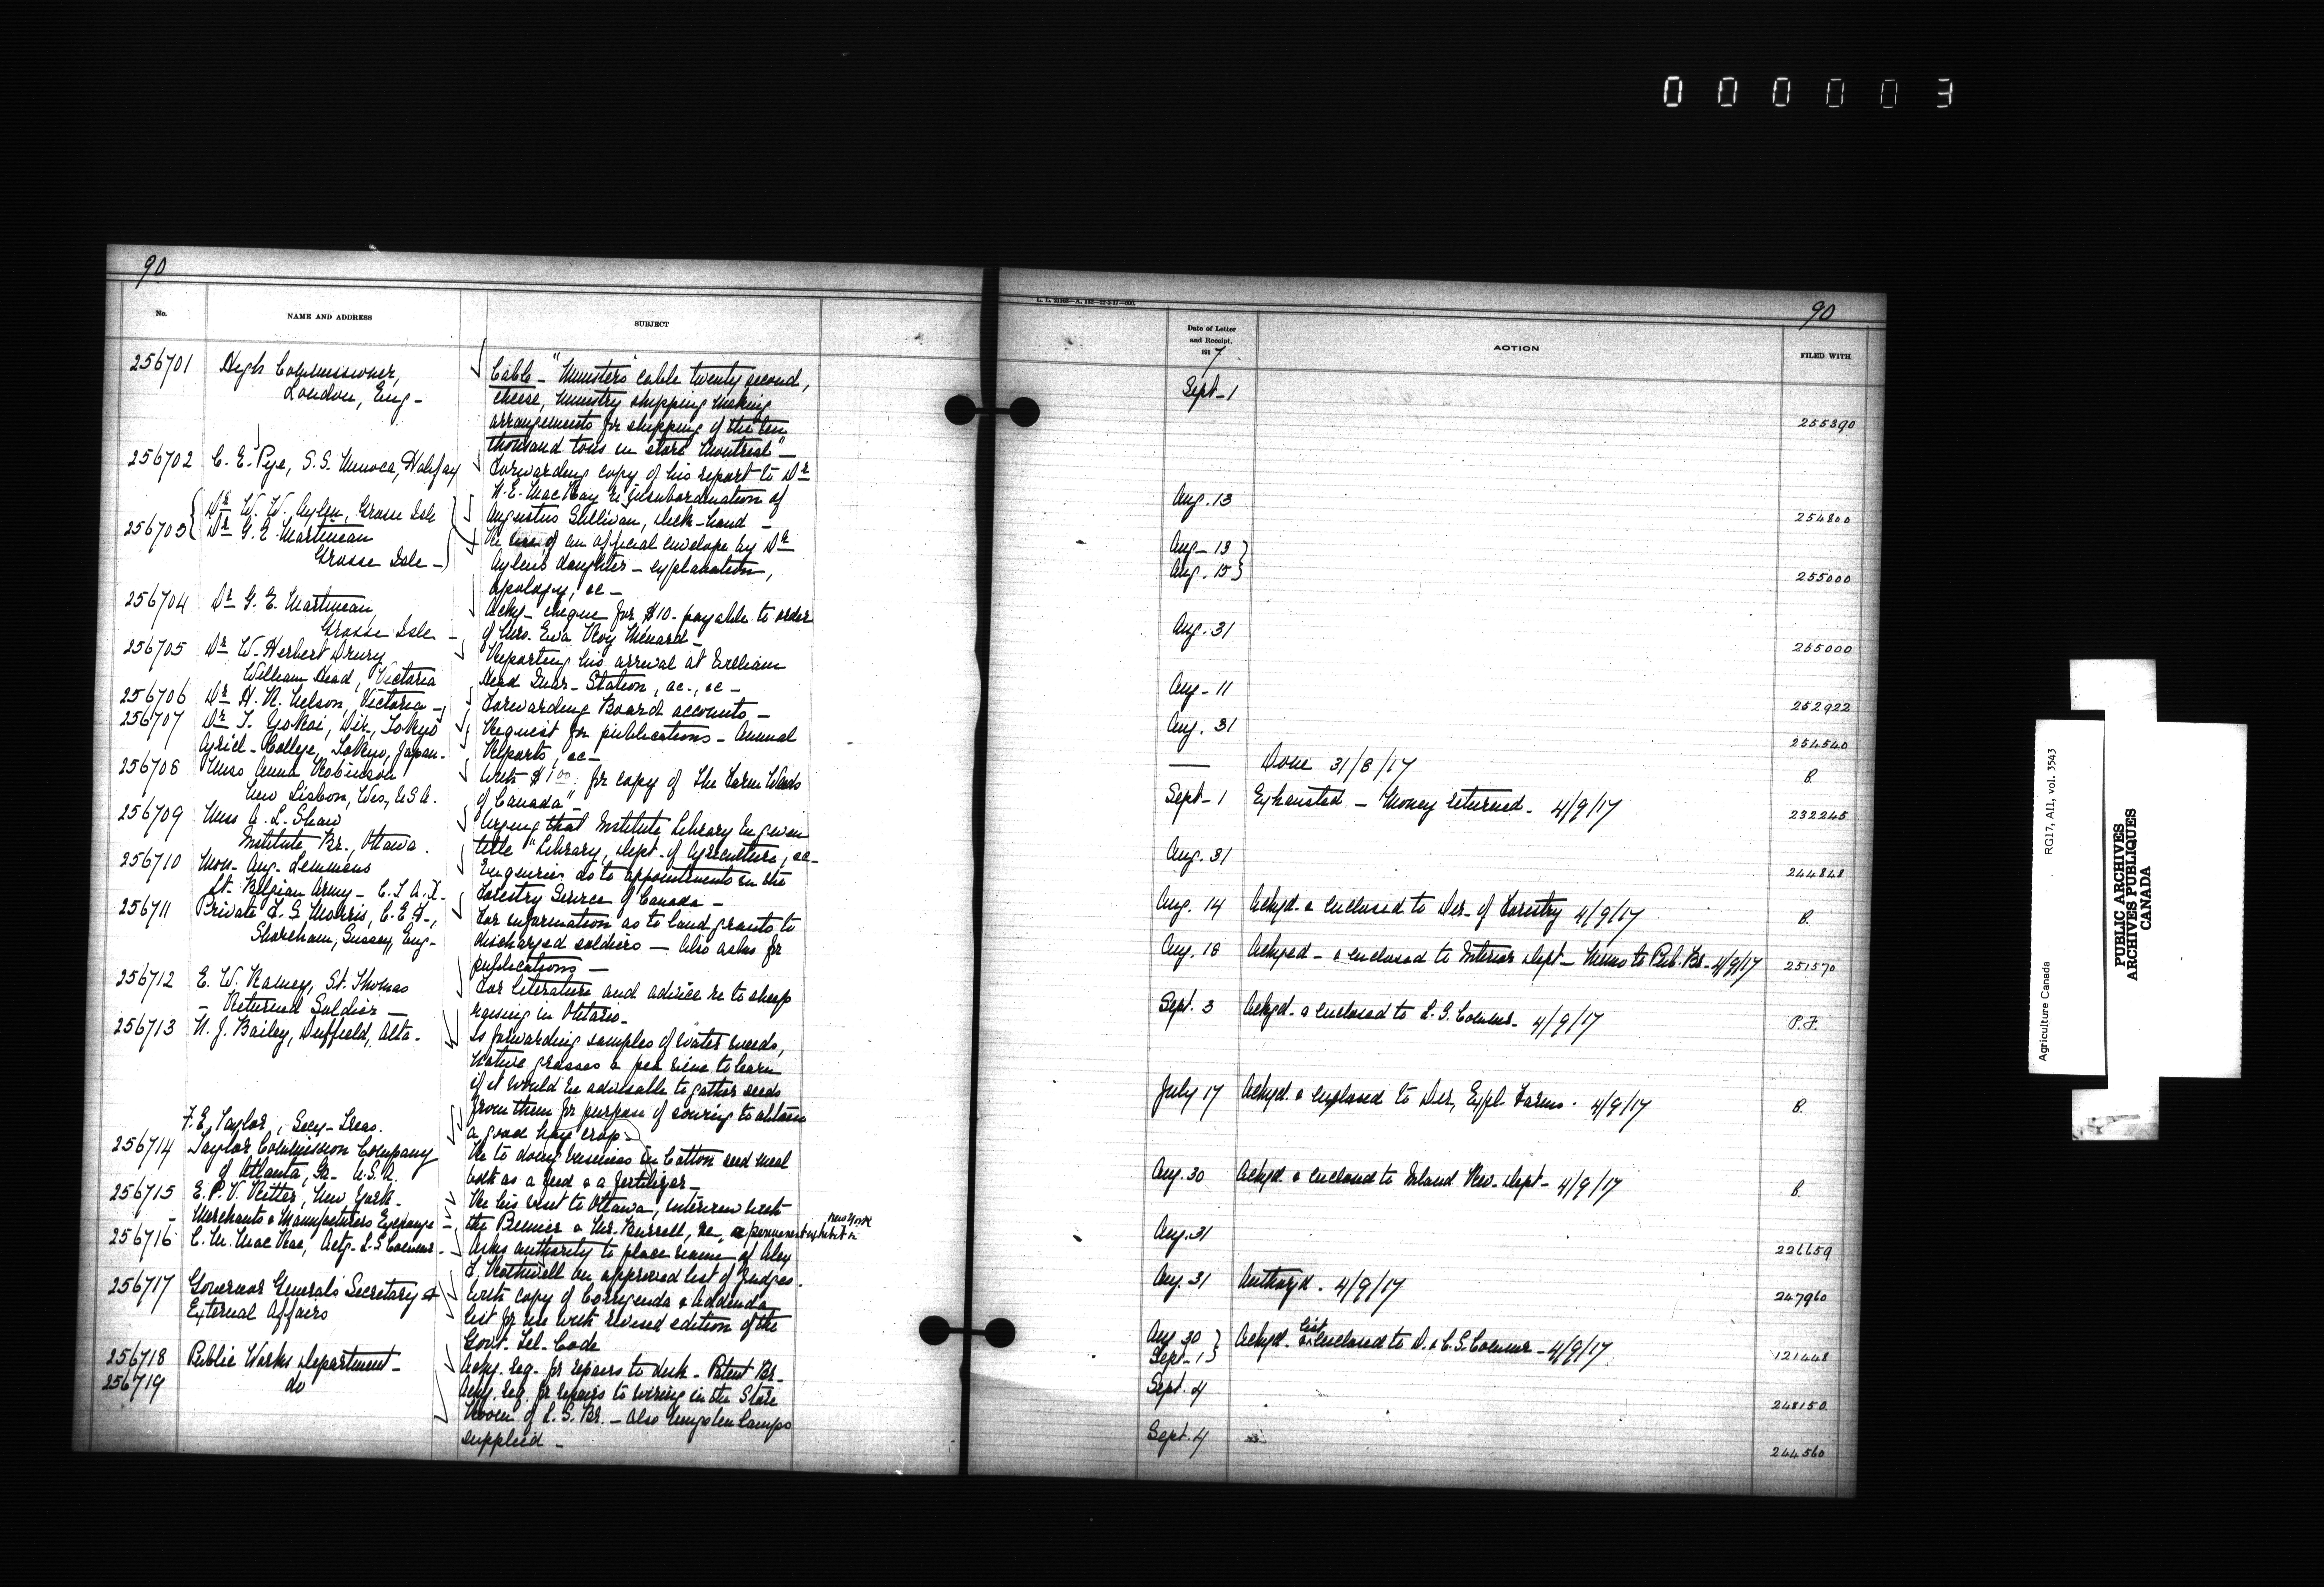 000003
90
No.
NAME AND ADDRESS
SUBJECT
256701
High Commissioner,
London, Eng -
Cable - "Ministers cable twenty second,
cheese, Ministry shipping making
arrangements for shipping of the ten
thousand tons in store Montreal" -
256702
C. E. Pye, S.S. Minoca, Halifax
Forwarding copy of his report to Dr
N. E. MacKay re insubordination of
Augustus Sullivan, deck-hand -
256703
Dr W. W. Aylen, Grosse Isle
Dr G. E. Martineau
Grosse Isle -
Re use of an official envelope by Dr
Aylens daughter - explanation,
apology, &c -
256704
Dr G. E. Martineau,
Grosse Isle -
Ackg - cheque for $10. payable to order
of Mrs. Eva Roy Menard -
256705
Dr W. Herbert Drury
William Head, Victoria
Reporting his arrival at William
Head Quar. Station, &c., &c -
256706
Dr H. R. Nelson, Victoria -
Forwarding Board accounts -
256707
Dr T. Yokoi, Dir., Tokyo
Agricl. College, Tokyo, Japan.
Request for publications - Annual
Reports, &c -
256708
Miss Anna Robinson
New Lisbon, Wis., U.S.A.
With $1.00 for copy of "The Farm Weeds
of Canada" -
256709
Miss A. L. Shaw
Institute Br., Ottawa.
Urging that Institute Library be given
title "Library, Dept. of Agriculture, &c -
256710
Mon. Aug. Lemmens
Lt. Belgian Army -
Enquiries as to appointments in the
Forestry Service of Canada -
256711
Private F. G. Morris, C.E.F.,
Shoreham, Sussex, Eng -
For information as to land grants to
discharged soldiers - Also asks for
publications -
256712
E. W. Ramey, St. Thomas
- Returned Soldier -
For literature and advice re to sheep
raising in Ontario -
256713
N. J. Bailey, Duffield, Alta -
Is forwarding samples of water weeds,
native grasses & pea vine to learn
if it would be advisable to gather seeds
from them for purpose of sowing to obtain
a good hay crop -
F. E. Taylor, Secy-Treas.
256714
Taylor Commission Company
of Atlanta, Ga - U.S.A.
Re to doing business in Cotton seed meal
both as a feed & a fertilizer -
256715
E. P. V. Ritter, New York.
- Merchants & Manufacturers Exchange
Re his visit to Ottawa, interview with
the Premier & Mr. Burrell, re, a permanent exhibit in
New York
256716
C. M. MacRae, Actg. L.S. Commr. -
Asks authority to place name of Alex
F. Rothwell on approved list of Judges.
256717
Governor Generals Secretary &
External Affairs
With copy of Corrigenda & Addenda
list for use with revised edition of the
Govt. Tel. Code
256718
Public Works Department -
Ackg. Req. for repairs to desk - Patent Br -
256719
do
Ackg. Req. for repairs to wiring in the Store
Room of L. S. Br. - Also Tungsten Lamps
supplied -
90
Date of Letter
and Receipt,
1917
ACTION
FILED WITH
Sept - 1
255390
Aug. 13
254800
Aug - 13
Aug. 15
255000
Aug. 31
255000
Aug - 11
252922
Aug. 31
254540
—
Done 31/8/17
B.
Sept - 1
Exhausted - Money returned - 4/9/17
232245
Aug. 31
244848
Aug. 14
Ackgd. & enclosed to Dir. of Forestry 4/9/17
B.
Aug. 18
Ackged - & enclosed to Interior Dept - Memo to Pub. Br - 4/9/17
251570
Sept. 3
Ackgd. & enclosed to L. S. Commr - 4/9/17
P.F.
July 17
Ackgd. & enclosed to Dir., Expl. Farms. 4/9/17
B.
Aug. 30
Ackgd. & enclosed to Inland Rev. Dept - 4/9/17
B.
Aug. 31
226659
Aug. 31
Authorzd. 4/9/17
247960
Aug 30
Sept. - 1
Ackgd. list & enclosed to D. & C. S. Commr - 4/9/17
121448
Sept. 4
248150
Sept. 4
244560
Agriculture Canada
RG17, AII, vol. 3543
PUBLIC ARCHIVES
ARCHIVES PUBLIQUES
CANADA